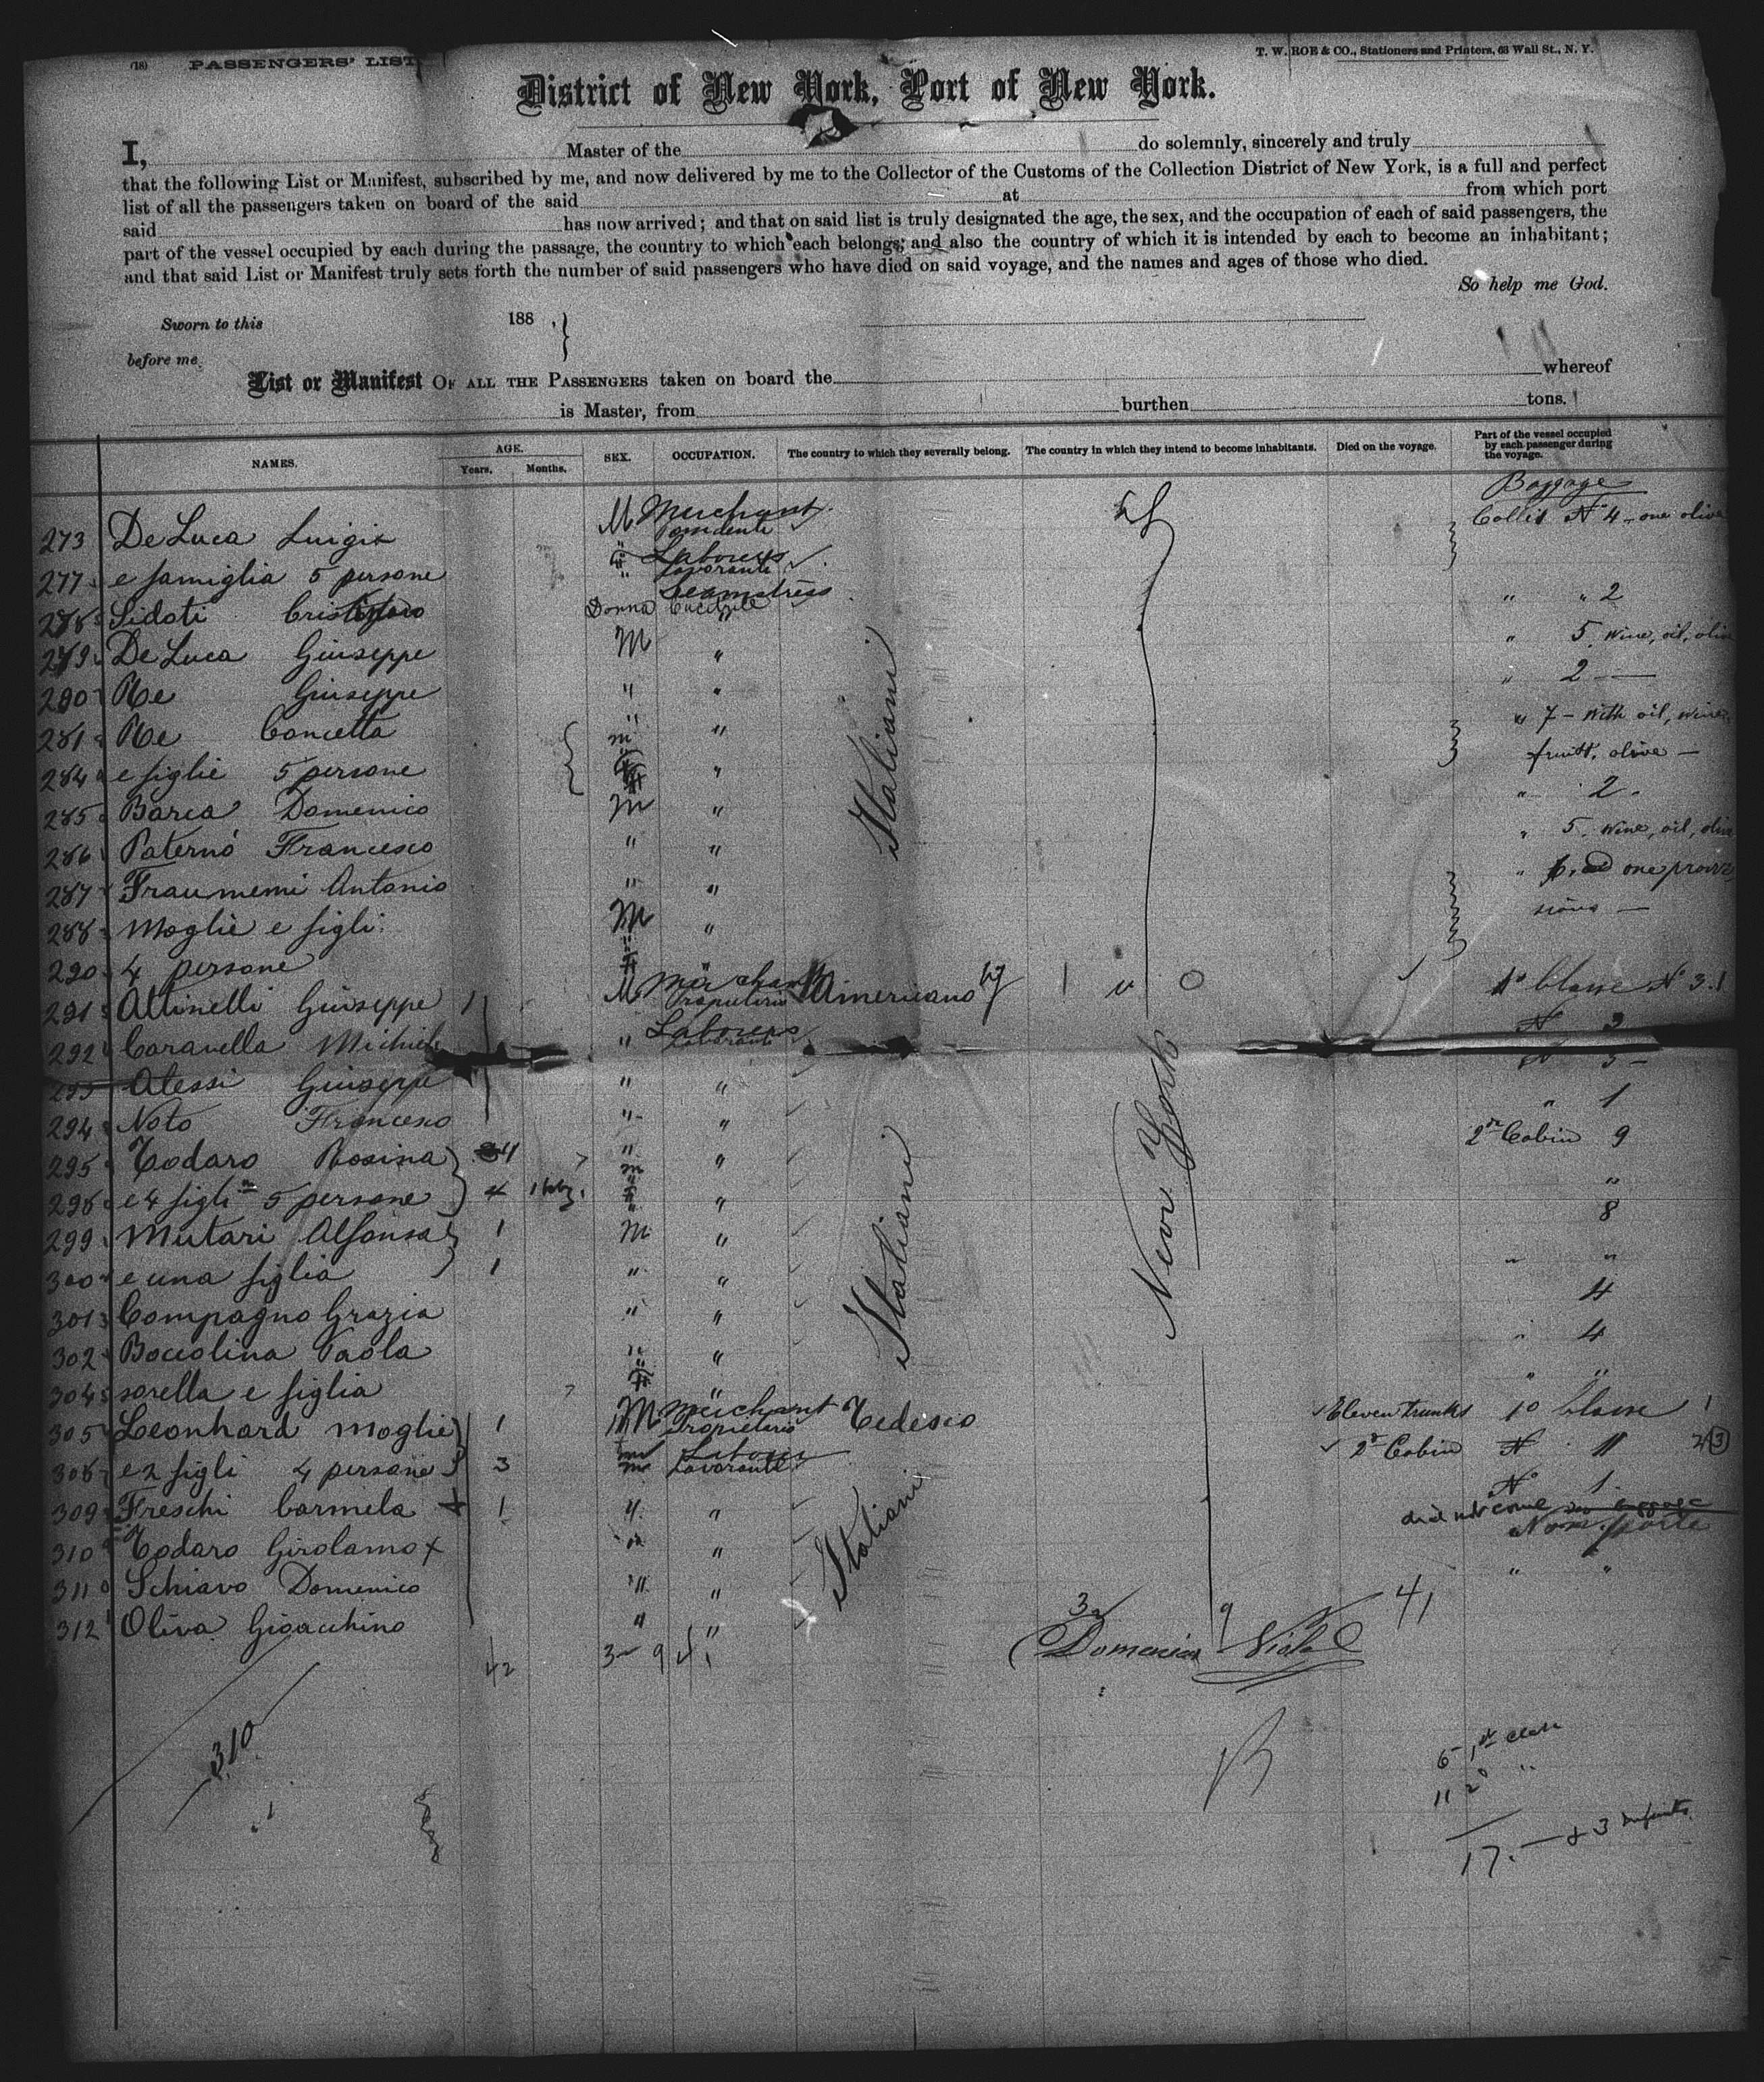 (18) PASSENGERS' LIST
T. W. ROE & CO., Stationers and Printers, 63 Wall St., N. Y.
District of New York, Port of New York.
I, Master of the do solemnly, sincerely and truly
that the following List or Manifest, subscribed by me, and now delivered by me to the Collector of the Customs of the Collection District of New York, is a full and perfect
list of all the passengers taken on board of the said at from which port
said has now arrived; and that on said list is truly designated the age, the sex, and the occupation of each of said passengers, the
part of the vessel occupied by each during the passage, the country to which each belongs; and also the country of which it is intended by each to become an inhabitant;
and that said List or Manifest truly sets forth the number of said passengers who have died on said voyage, and the names and ages of those who died.
So help me God.
Sworn to this 188 , }
before me
List or Manifest OF ALL THE PASSENGERS taken on board the whereof
is Master, from burthen tons.
NAMES. AGE. Years. Months. SEX. OCCUPATION. The country to which they severally belong. The country in which they intend to become inhabitants. Died on the voyage. Part of the vessel occupied by each passenger during the voyage.
Baggage
273 De Luca Luigia M Merchant Collis N° 4 - one olive
277 e famiglia 5 persone " Laborers Lavorante
278 Sidoti Donna Seamstress " " 2
279 De Luca Giuseppe M " " 5. wine, oil, olive
280 Re Giuseppe " " " 2
281 Re Concetta " " " 7 - with oil, wine,
284 e figlie 5 persone m " fruitt, olive -
285 Barca Domenico M " " 2.
286 Paternó Francesco " " " 5. wine, oil, olive
287 Fraumemi Antonio " " " one provi
288 Moglie e figli: M " sions -
290 4 persone
291 Attinelli Giuseppe 1 M Merchant Americano 1° Classe N° 3.1
292 Caravella Michele " Laborers Lavorante N 3
293 Alessi Giuseppe " " N 3 -
294 Noto Francesco " " " 1
295 Todaro Rosina 34 " " 2ª Cabin 9
298 e 4 figli 5 persone 4 " "
299 Mutari Alfonsa 1 M " 8
300 e una figlia 1 " " " "
301 Compagno Grazia " " 4
302 Bocolina Paola " " " 4
304 sorella e figlia " " "
305 Leonhard Moglie 1 M Merchant Propietario Tedesco Eleven trunks 1° Classe 1
308 e 2 figli 4 persone 3 Laborer Lavorante 2ª Cabin N 11 2 3
309 Freschi Carmela + 1 " " N° 1.
310 Todaro Girolamo + " " did not come Non porta
311 Schiavo Domenico " " " "
312 Oliva Gioacchino " "
Italiani
Italiani
Italiani
New York
42 32 9 41
32 9 41
Domenico Viola
310
6 1st class
11 2d "
17. - & 3 infants.